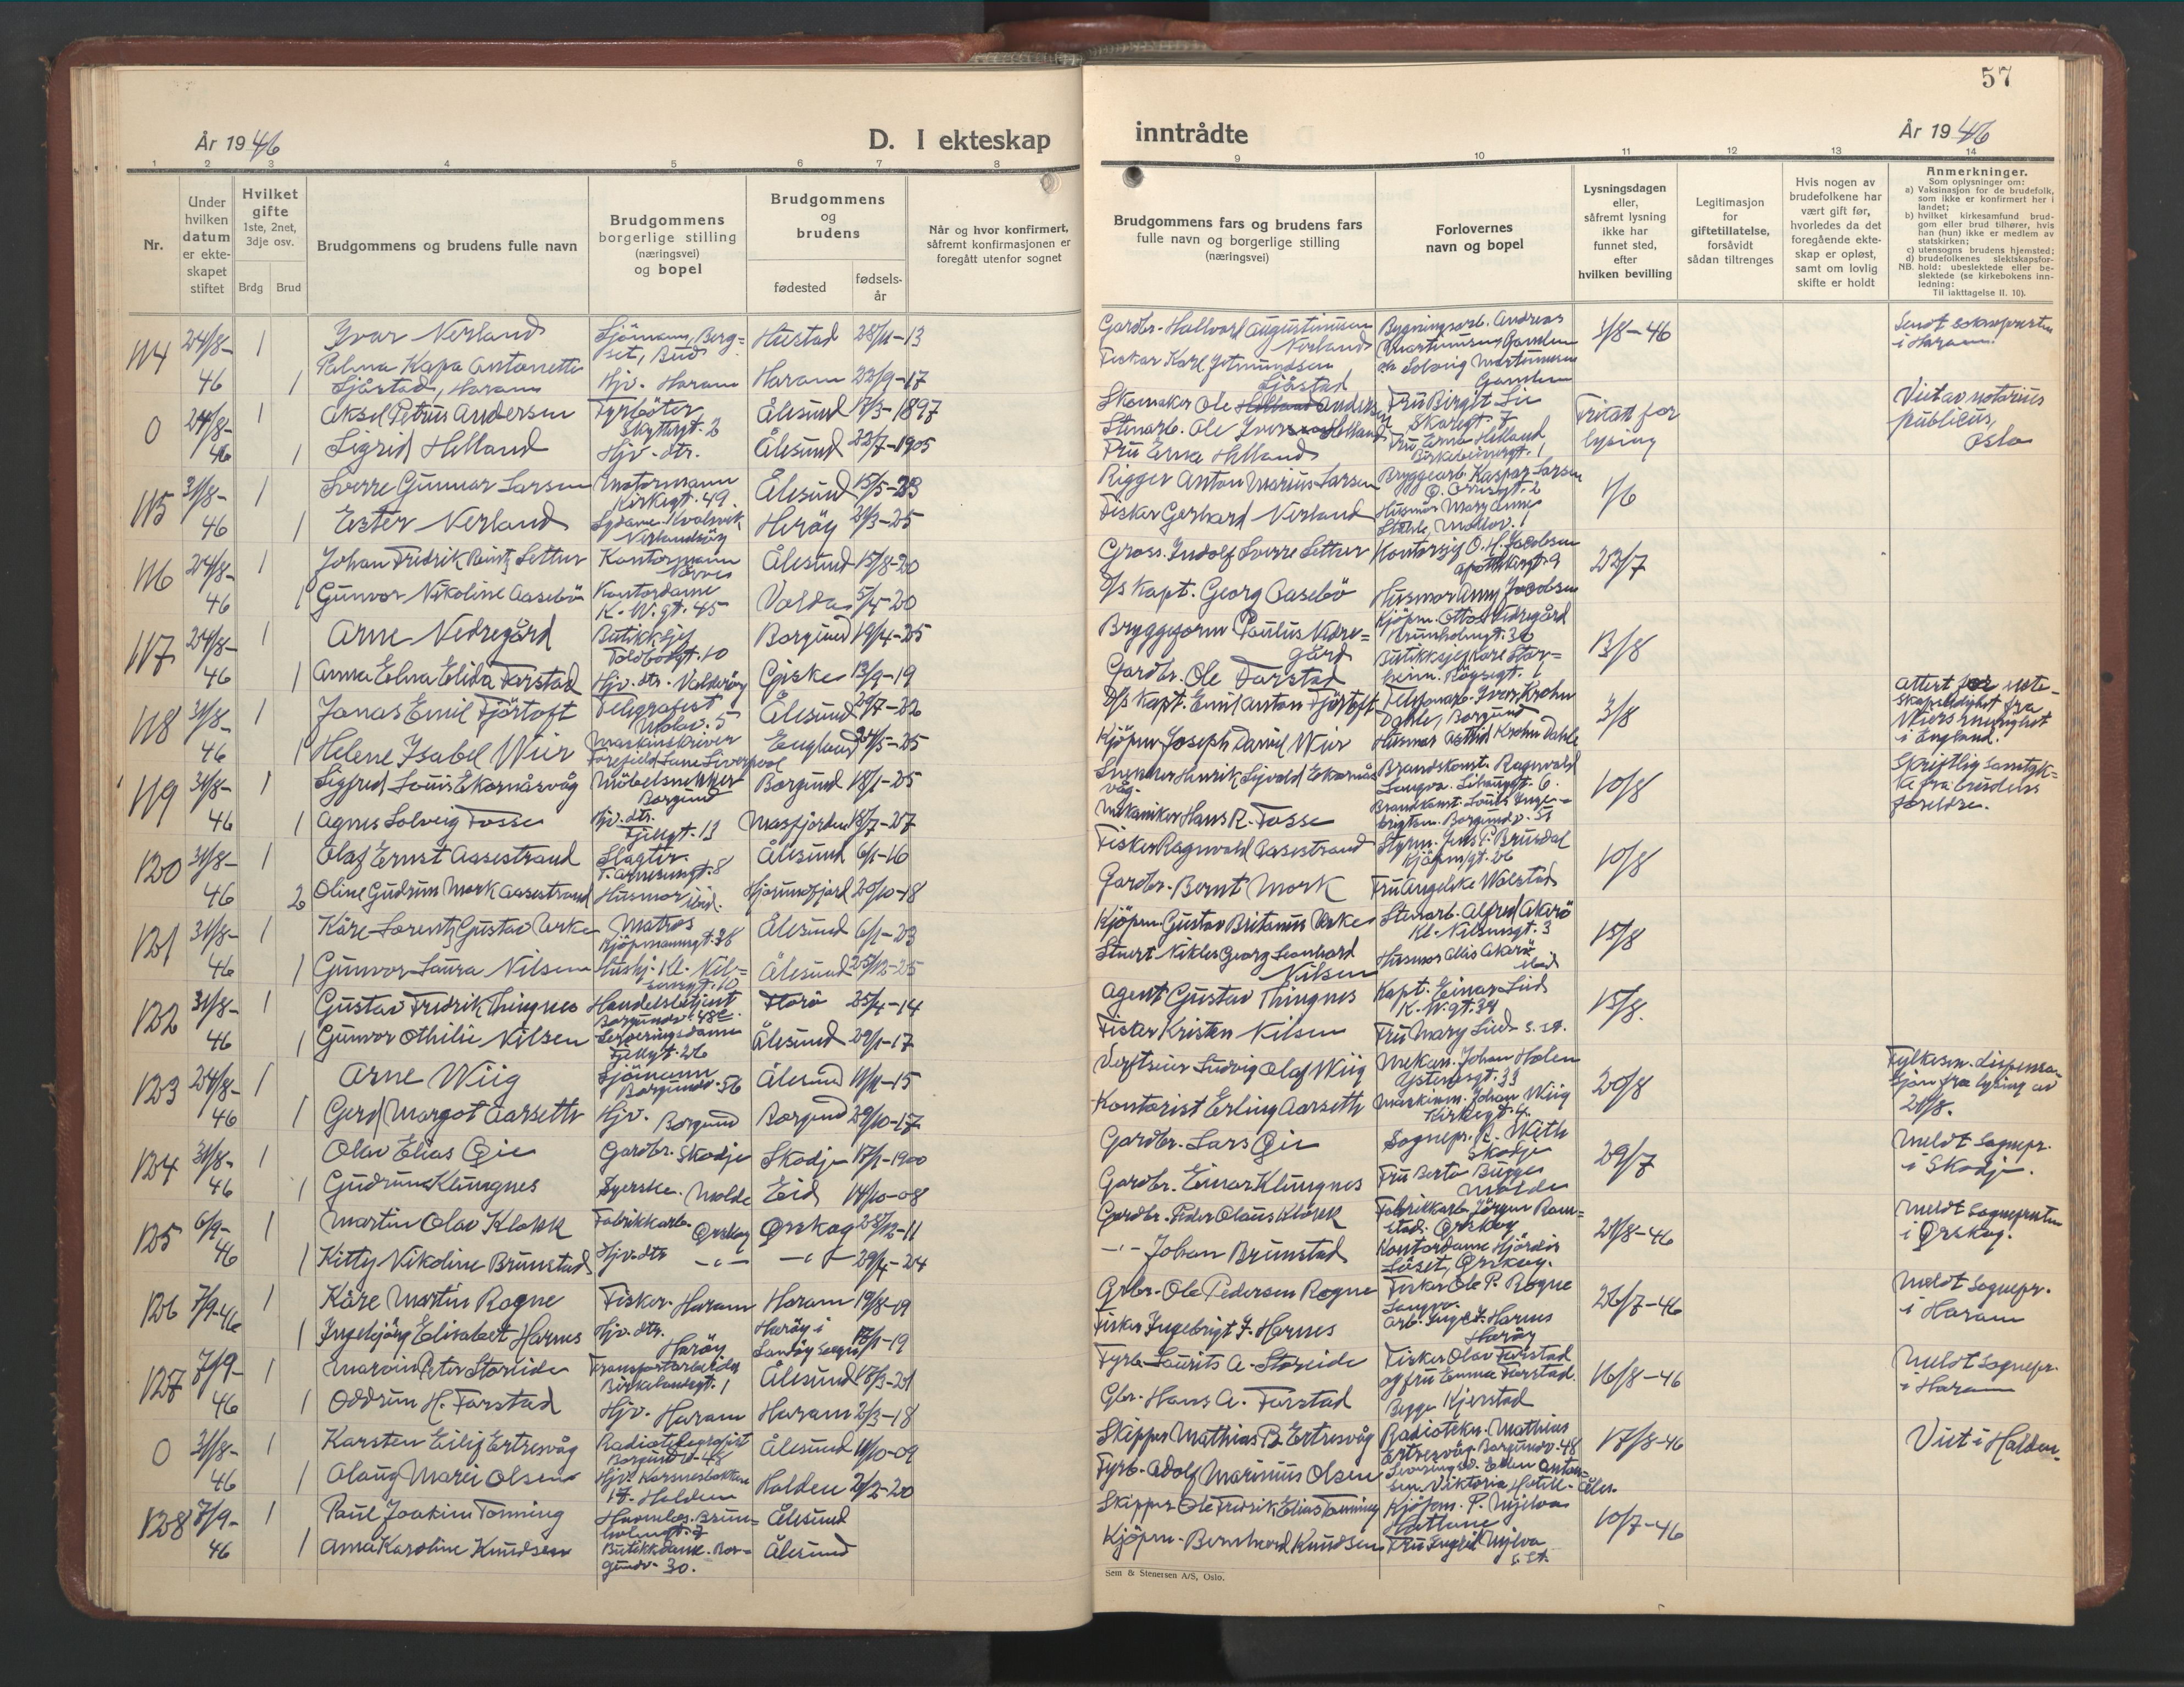 57
År 1946
D. I ekteskap
inntrådte
År 1946
1 2 3 4 5 6 7 8 9 10 11 12 13 14
Nr.
Under
hvilken
datum
er ekte-
skapet
stiftet
Hvilket
gifte
1ste, 2net,
3dje osv.
Brdg
Brud
Brudgommens og brudens fulle navn
Brudgommens
borgerlige stilling
(næringsvei)
og bopel
Brudgommens
og
brudens
fødested
fødsels-
år
Når og hvor konfirmert,
såfremt konfirmasjonen er
foregått utenfor sognet
Brudgommens fars og brudens fars
fulle navn og borgerlige stilling
(næringsvei)
Forlovernes
navn og bopel
Lysningsdagen
eller,
såfremt lysning
ikke har
funnet sted,
efter
hvilken bevilling
Legitimasjon
for
giftetillatelse,
forsåvidt
sådan tiltrenges
Hvis nogen av
brudefolkene har
vært gift før,
hvorledes da det
foregående ekte-
skap er opløst,
samt om lovlig
skifte er holdt
Anmerkninger.
Som oplysninger om:
a) Vaksinasjon for de brudefolk,
som ikke er konfirmert her i
landet;
b) hvilket kirkesamfund brud-
gom eller brud tilhører, hvis
han (hun) ikke er medlem av
statskirken;
c) utensogns brudens hjemsted;
d) brudefolkenes slektskapsfor-
NB. hold: ubeslektede eller be-
slektede (se kirkebokens inn-
ledning:
Til iakttagelse II. 10).
114 24/8-46 1 Yvar Nerland Sjömann, Berg=set, Bud Hustad 28/11-13 Gardbr. Hallvard Augustinusen Nerland Bygningsarb. Andreas Martinusen Gamlem 1/8-46
1 Palma Kapa Antonette Sjåstad, Haram Hjv. Haram Haram 22/9-17 Fisker Karl Jetmundsen Sjåstad Solveig Martinusen Gamlem
0 24/8-46 1 Aksel Petrus Andersen Fyrböter Skyttergt. 2 Ålesund 17/3-1897 Skomaker Ole Andersen Fru Birgit Lie Skaregt. 7 Fritatt for lysing Viet av notarius publicus, Oslo
1 Sigrid Helland Hjv. dtr. Ålesund 22/7-1905 Stenarb. Ole Iver Helland Fru Erna Helland Fru Erna Helland
115 31/8-46 1 Sverre Gunnar Larsen Motormann Kirkegt. 49 Ålesund 15/5-23 Rigger Anton Marius Larsen Bryggearb. Kaspar Larsen 1/6
1 Ester Nerland Sydame Heröy 21/3-25 Fisker Gerhard Nerland Husmor Mary Anne
116 24/8-46 1 Johan Fridrik Setter Kontormann Ålesund 15/8-20 Gross. Indolf Sverre Setter Kontorsjef O. H. Jacobsen 23/7
1 Gunvor Nikoline Aasebö Kontordame K. W. gt. 45 Volda 5/4-20 D/s Kapt. Georg Aasebö Husmor Anny Jacobsen
117 24/8-46 1 Arne Nedregård Butikksjef Toldbodgt. 10 Borgund 19/4-25 Bryggeform Paulus Nedre=gård Kjöpm. Otto Nedregård 13/8
1 Anna Elna Elida Farstad Hjv. dtr. Valderöy Giske 13/9-19 Gardbr. Ole Farstad Butikksjef Kåre
118 31/8-46 1 Jonas Emil Fjörtoft Telegrafist Ålesund 22/7-22 D/s Kapt. Emil Anton Fjörtoft Telefonarb. Ivar Krohn Dahle, Borgund 3/8 Attest for ekte-skapsdyktighet fra i England.
1 Helene Ysabel Wier Maskinskriver Liverpool England 24/5-25 Kjöpm. Joseph Daniel Wier Husmor Astrid Krohn Dahle
119 31/8-46 1 Sigfred Louis Ekornåsvåg Möbelsnekker Borgund Borgund 18/1-25 Snekker Henrik Sjivald Ekornås=våg Brandkonst. Ragnvald Longva 10/8 Skriftlig samtyk=ke fra brudens foreldre.
1 Agnes Solveig Fosse Hjv. dtr. Fjellgt. 13 Masfjorden 18/7-27 Mekaniker Hans R. Fosse Brandkonst. Louis Inge=brigtsen. Borgundv. 55
120 31/8-46 1 Olaf Ernst Aasestrand Slagter Ålesund 6/1-16 Fisker Ragnvald Aasestrand Styrm. Jens P. Brusdal Kjöpm.gt. 26 10/8
2 Oline Gudrun Mork Aasestrand Husmor ibid. Hjörundfjord 20/10-18 Gardbr. Bernt Mork Fru Angelike Walstad
121 31/8-46 1 Kåre Lorentz Gustav Urke Matros Kjöpmannsgt. 28 Ålesund 6/1-23 Kjöpm. Gustav Britanus Urke Stenarb. Alfred Akerö Kl. Nilsensgt. 3 15/8
1 Gunvor Laura Nilsen Hushj. Kl. Nil=sensgt. 10 Ålesund 25/12-25 Stuert Niklas Georg Leonhard Nilsen Husmor Alis Akerö ibid
122 31/8-46 1 Gustav Fredrik Thingnes Handelsbetjent Borgundv. 48 Florö 25/4-14 Agent Gustav Thingnes Kapt. Einar Lied K. W. gt. 34 15/8.
1 Gunvor Othilie Nilsen Serveringsdame Fjellgt. 26 Ålesund 29/1-17 Fisker Kristen Nilsen Fru Mary Lied s. st.
123 24/8-46 1 Arne Wiig Sjömann Borgundv. 56 Ålesund 11/11-15 Verftseier Ludvig Olaf Wiig Mekan. Johan Holen 20/8 Fylkesm. dispensa-sjon fra lysing av 21/8.
1 Gerd Margot Aarseth Hjv. Borgund Borgund 29/10-17 Kontorist Erling Aarseth Maskinm. Johan Wiig
124 31/8-46 1 Olav Elias Gie Gardbr. Skodje Skodje 17/1-1900 Gardbr. Lars Gie Sognepr. R. With Skodje 29/7 Meldt sognepr. i Skodje.
1 Gudrun Klungnes Syerske. Molde Eid 14/10-08 Gardbr. Einar Klungnes Fru Berta Bugge Molde
125 6/9-46 1 Martin Olav Klokk Fabrikkarb. Ørskog Ørskog 28/12-11 Gardbr. Peder Olaus Klokk Fabrikkarb. Jörgen Ram=stad. Ørskog 21/8-46 Meldt sognepresten i Ørskog.
1 Kitty Nikoline Brunstad Hjv. dtr. -"- -"- 29/4-24 -"- Johan Brunstad Kontordame Hjördis Løset, Ørskog.
126 7/9-46 1 Kåre Martin Rogne Fisker. Haram Haram 19/8-09 Grbr. Ole Pedersen Rogne Fisker Ole P. Rogne Longva. 26/7-46 Meldt sognepr. i Haram
1 Ingebjörg Elisabet Harnes Hjv. dtr. Haröy Haröy i Sandöy sogn 12/1-19 Fisker Ingebrigt J. Harnes Arb. Inge I. Harnes Haröy
127 7/9-46 1 Marvin Peter Störeide Transportarbeider Birkelandsgt. 1 Ålesund 18/3-21 Fyrb. Laurits A. Störeide Fisker Olav Farstad og fru Emma Farstad. 16/8-46 Meldt sognepr. i Haram
1 Oddrun H. Farstad Hjv. Haram Haram 2/3-18 Gbr. Hans A. Farstad Begge Kjerstad
0 31/8-46 1 Karsten Eilif Ertresvåg Radiotelegrafist Borgundv. 48 Ålesund 11/10-09 Skipper Mathias B. Ertresvåg Radiotekn. Mathias Ertresvåg Borgundv. 48 17/8-46 Viet i Halden.
1 Olaug Marei Olsen Hjv. Halden Halden 2/2-20 Fyrb. Adolf Marinius Olsen Serveringsd. Ellen Anton=sen. Viktoria Hotell.
128 7/9-46 1 Paul Joakim Tonning Ålesund Skipper Ole Fredrik Elias Tonning Kjöpm. P. Mjelva Hatlane 10/7-46
1 Anna Karoline Knudsen Butikkdame. Bor=gundv. 30. Ålesund Kjöpm. Bernhard Knudsen Fru Ingrid Mjelva s. st.
Sem & Stenersen A/S, Oslo.